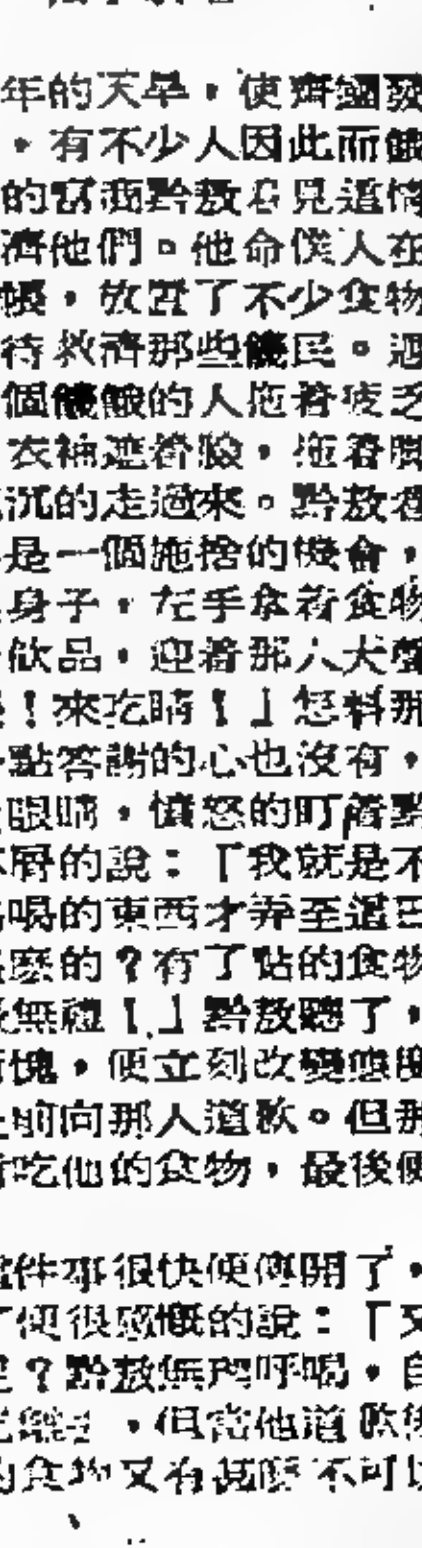 年的天旱，使齊國發
，有不少人因此而餓
的富商黔敖看見這情
濟他們。他命僕人在
，放置了不少食物
待救濟那些饑民。遇
個饑餓的人拖着疲乏
衣袖遮着臉，拖着腳
沉的走過來。黔敖
是一個施捨的機會，
身子，左手拿着食物
飲品，迎着那人大聲
！來吃啊！」怎料那
點答謝的心也沒有，
眼睛，憤怒的盯着黔
屑的說：「我就是不
喝的東西才弄至這
麼的？有了點的食物
無禮！」黔敖聽了，
愧，便立刻改變態度
前向那人道歉。但那
吃他的食物，最後便
件事很快便傳開了，
便很感慨的說：「又
？黔敖無禮呼喝，自
，但當他道歉後
的食物又有甚麼不可以